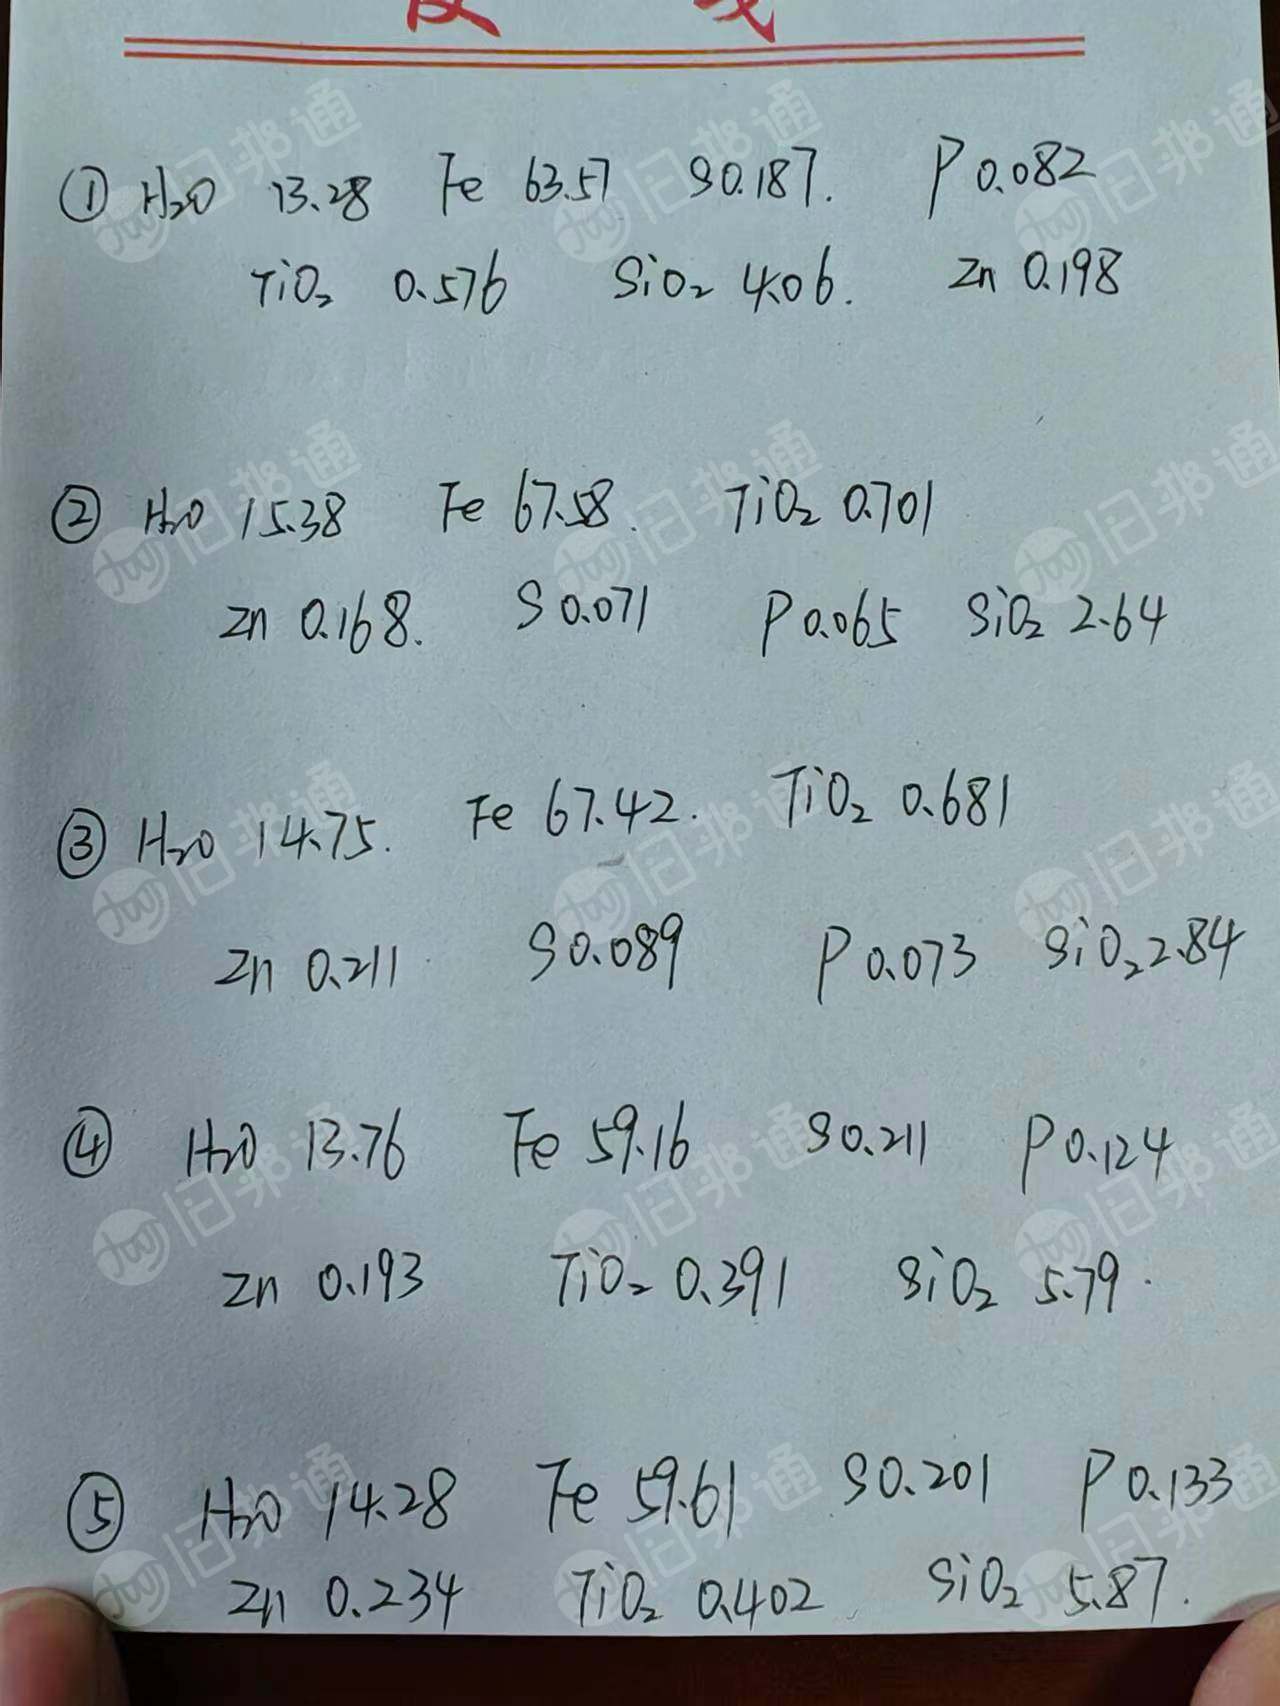 ① H₂O 13.28 Fe 63.57 S 0.187. P 0.082
TiO₂ 0.576 SiO₂ 4.06. Zn 0.198
② H₂O 15.38 Fe 67.58. TiO₂ 0.701
Zn 0.168. S 0.071 P 0.065 SiO₂ 2.64
③ H₂O 14.75. Fe 67.42. TiO₂ 0.681
Zn 0.211 S 0.089 P 0.073 SiO₂ 2.84
④ H₂O 13.76 Fe 59.16 S 0.211 P 0.124
Zn 0.193 TiO₂ 0.391 SiO₂ 5.79.
⑤ H₂O 14.28 Fe 59.61 S 0.201 P 0.133
Zn 0.234 TiO₂ 0.402 SiO₂ 5.87.
旧邦通